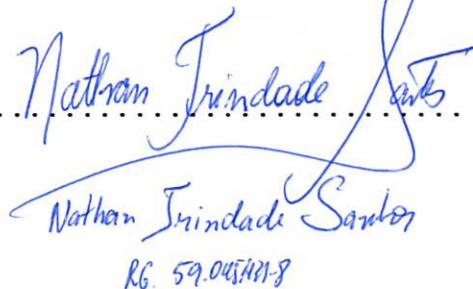 Nathan Trindade Santos
Nathan Trindade Santos
RG.